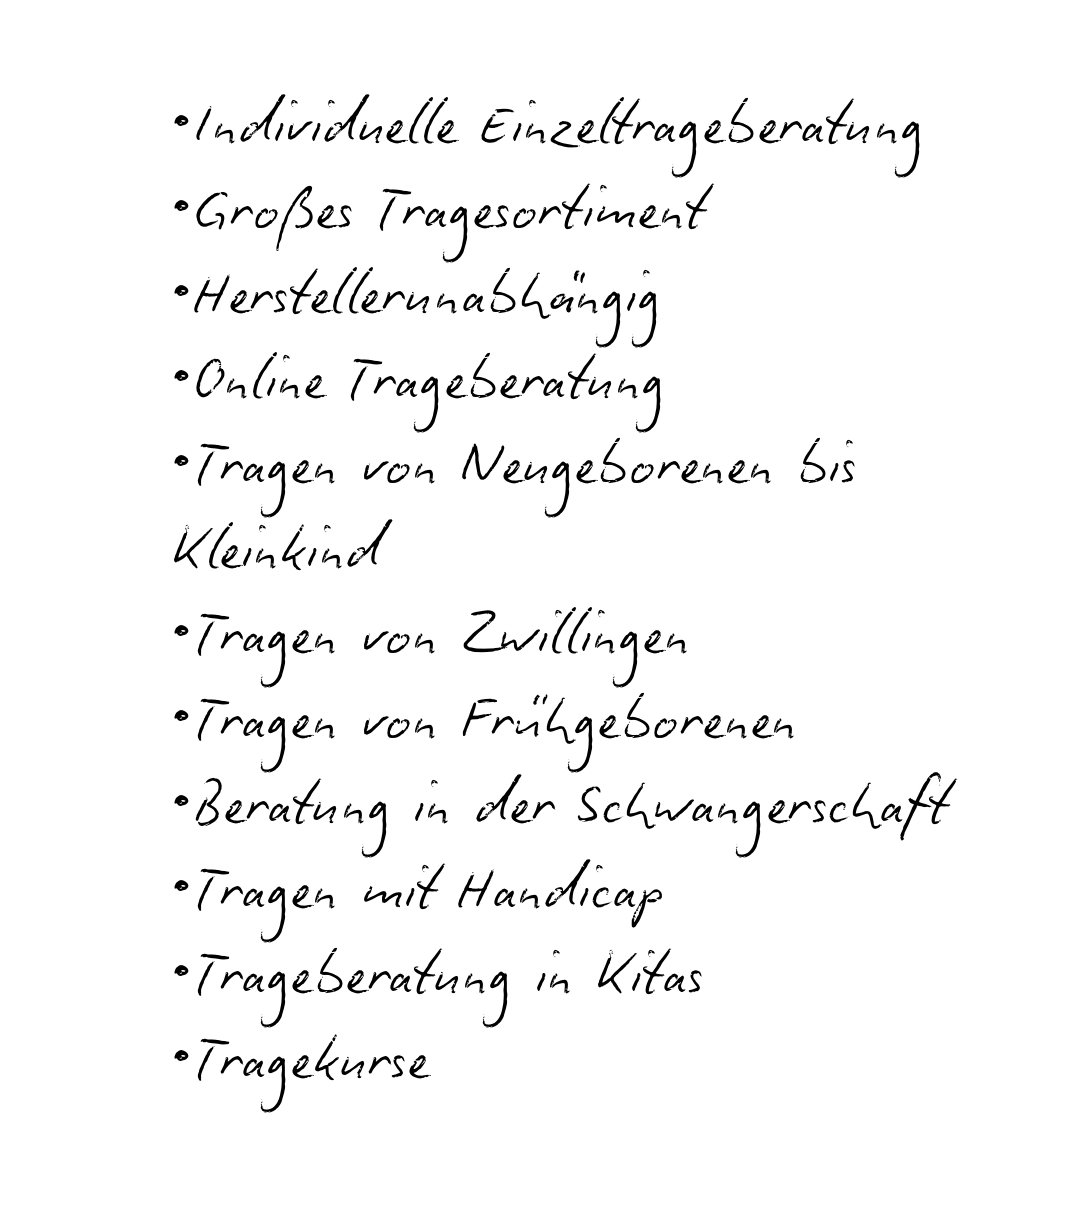 •Individuelle Einzeltrageberatung
•Großes Tragesortiment
•Herstellerunabhängig
•Online Trageberatung
•Tragen von Neugeborenen bis
Kleinkind
•Tragen von Zwillingen
•Tragen von Frühgeborenen
•Beratung in der Schwangerschaft
•Tragen mit Handicap
•Trageberatung in Kitas
•Tragekurse